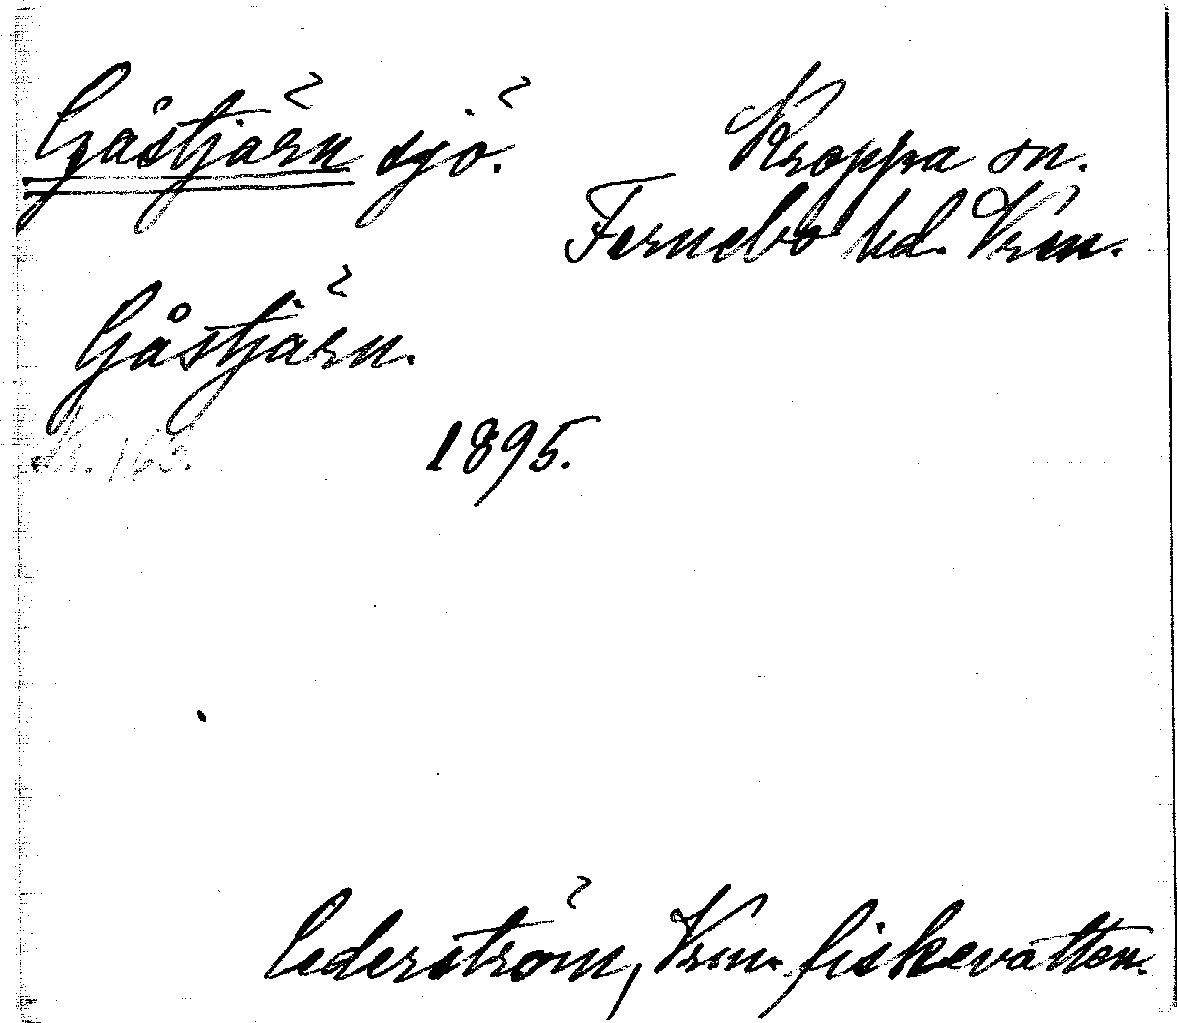 Gåstjärn sjö. Kroppa sn.
Fernebo hd. Vrm.
Gåstjärn.
1895.
Cederström, Vrm. fiskevatten.